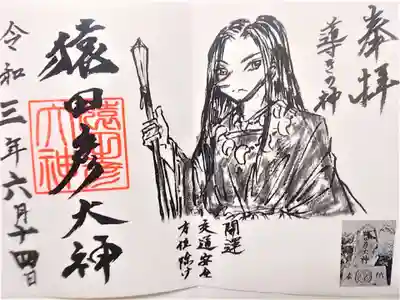 奉拝
導きの神
開運
交通安全
方位除け
猿田彦大神
猿田彦
大神
令和三年六月十四日